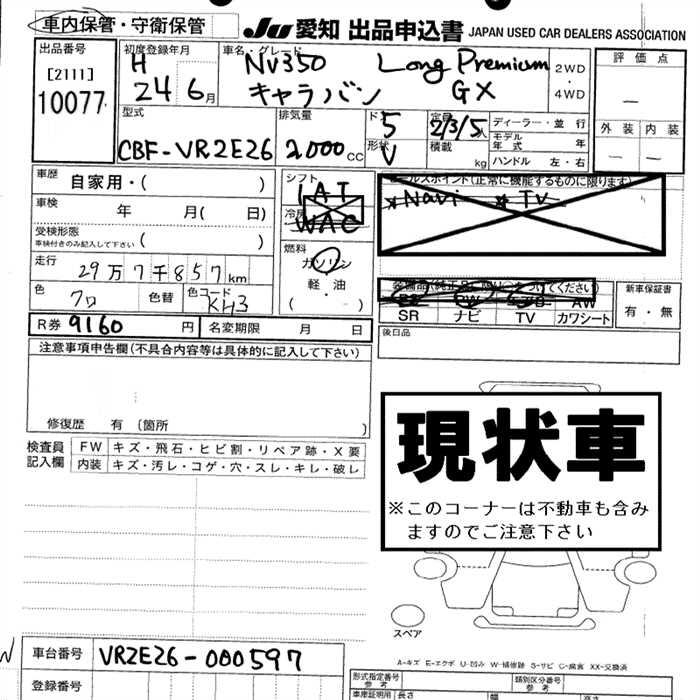 車内保管・守衛保管
JU 愛知 出品申込書 JAPAN USED CAR DEALERS ASSOCIATION
出品番号
[2111]
10077
初度登録年月
H 24 6月
車名・グレード
NV350 Long Premium
キャラバン GX
2WD
・
4WD
評価点
―
外装 内装
― ―
型式
CBF-VR2E26
排気量
2000cc
ド 5
形状 V
定員
2/3/5人
積載 kg
ディーラー・並行
モデル年式 年
ハンドル 左・右
車歴
自家用・( )
シフト
1AT
冷房
WAC
車検 年 月( 日)
受検形態
車検付きのみ記入して下さい ( )
走行 29万7千857km
燃料
ガソリン
軽油
( ・ )
色 クロ 色替 色コード KH3
セールスポイント(正常に機能するものに限ります)
★Navi ★TV
AW
SR ナビ TV カワシート
新車保証書
有・無
R券 9160円 名変期限 月 日
後日品
注意事項申告欄(不具合内容等は具体的に記入して下さい)
修復歴 有〔箇所
検査員
記入欄
FW キズ・飛石・ヒビ割・リペア跡・X要
内装 キズ・汚レ・コゲ・穴・スレ・キレ・破レ
現状車
※このコーナーは不動車も含み
ますのでご注意下さい
スペア
A-キズ E-エクボ U-凹み W-補修跡 S-サビ C-腐食 XX-交換済
車台番号 VR2E26-000597
登録番号
形式指定番号
参考
類別区分番号
参考
車庫証明用 長さ 幅 高さ